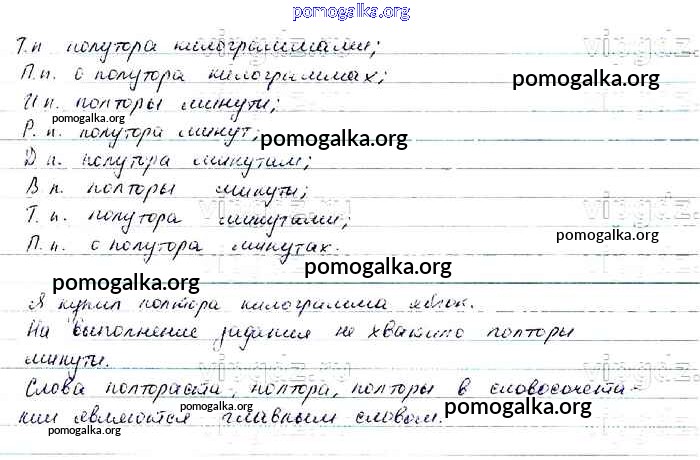 pomogalka.org
Т.п полутора килограммами;
П.п. о полутора килограммах;
pomogalka.org
И п. полторы минуты;
pomogalka.org
Р. п. полутора минут;
pomogalka.org
Д п. полутора минутам;
В п. полторы минуты;
Т. п. полутора минутами;
П. п. о полутора минутах.
pomogalka.org
pomogalka.org
pomogalka.org
Я купил полтора килограмма яблок.
На выполнение задания не хватило полторы
минуты.
Слова полтораста, полтора, полторы в словосочета-
нии являются главным словом.
pomogalka.org
pomogalka.org
pomogalka.org